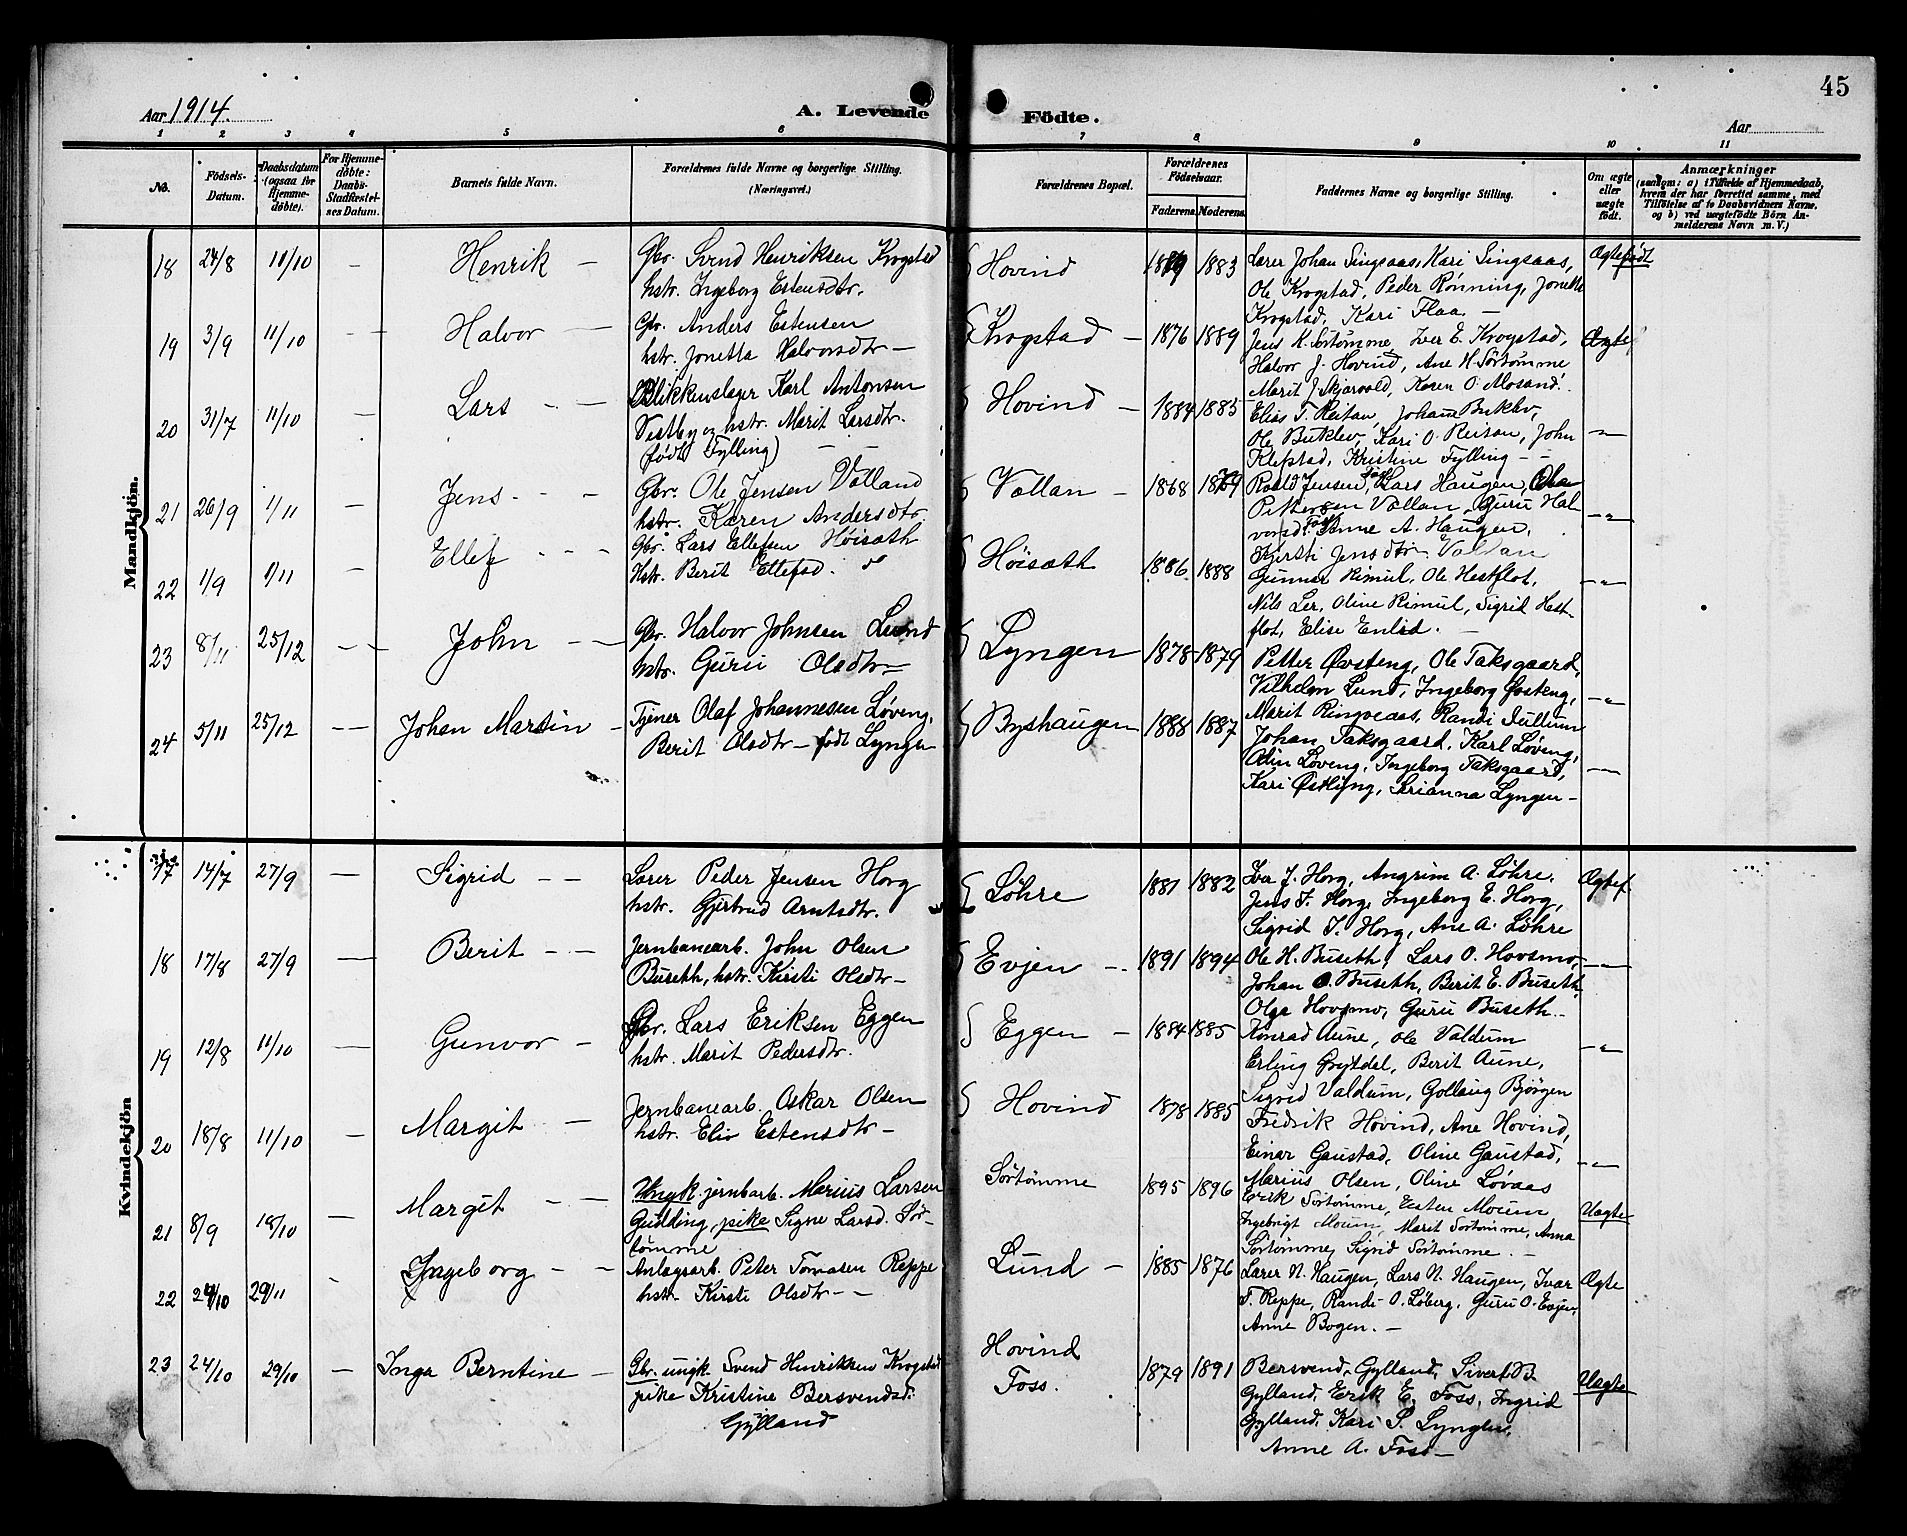 45
Aar 1914.
A. Levende Födte.
Aar
1 2 3 4 5 6 7 8 9 10 11
No.
Födsels-Datum.
Daabsdatum (ogsaa for Hjemmedøbte).
For Hjemmedøbte: Daabs-Stadfæstelses Datum.
Barnets fulde Navn.
Forældrenes fulde Navne og borgerlige Stilling. (Næringsvei.)
Forældrenes Bopæl.
Forældrenes Födselsaar.
Faderens. Moderens.
Faddernes Navne og borgerlige Stilling.
Om ægte eller uægte födt.
Anmærkninger
(saasom: a) i Tilfælde af Hjemmedaab, hvem der har forrettet samme, med Tilföielse af to Daabsvidners Navne, og b) ved uægtefödte Börn Anmelderens Navn m. V.)
Mandkjön.
18 24/8 11/10 – Henrik – Gbr. Svend Henriksen Krogstad
hstr. Ingeborg Estensdtr.
Hovind 1883 Lærer Johan Singsaas, Kari Singsaas,
Ole Krogstad, Peder Rønning, Jonetta
Krogstad, Kari Flaa. –
Ægtefödt
19 3/9 11/10 – Halvor – Gbr. Anders Estensen
hstr. Jonetta Halvorsdtr –
Krogstad – 1876 1889 Jens H. Sörtömme, Iver E. Krogstad,
Halvor J. Hovind, Ane H. Sörtömme
Marit J. Skjærvold, Karen O. Mosand.
Ægtef
20 31/7 11/10 – Lars – – Blikkenslager Karl Antonsen
Vestby og hstr. Marit Larsdtr.
(født Fylling) –
Hovind – 1884 1885 Elias T. Reitan, Johan Buklev,
Ole Buklev, Kari O. Reitan, John
Klefstad, Kristine Fylling – –
–"–
21 26/9 1/11 – Jens – – Gbr. Ole Jensen Valland
hstr. Karen Andersdtr.
Vollan – 1868 Roald Jensen, Lars Haugen,
Pettersen Vollan, Guru Hal-
vorsd. Anne A. Haugen.
Kjersti Jensdtr Vollan
–"–
22 1/9 1/11 – Ellef – – – Gbr. Lars Ellefsen Höisæth
Hstr. Berit Ellefsd.
Höisæth 1886 1888 Gunnar Rimul, Ole Hestflot,
Nils Ler, Oline Rimul, Sigrid Hest-
flot, Elise Enlid. –
–"–
23 8/11 25/12 – – John – – Gbr. Halvor Johnsen Lund
hstr. Guru Olsdtr –
Lyngen 1878 1879 Petter Øvsteng, Ole Taksgaard,
Vilhelm Lund, Ingeborg Øvsteng,
Marit Ringveaas, Randi Jullum
–"–
24 5/11 25/12 – – Johan Martin – Tjener Olaf Johannesen Løveng,
Berit Olsdtr – født Lyngen
Byshaugen 1888 1887 Johan Taksgaard, Karl Løveng,
Odin Løveng, Ingeborg Taksgaard,
Kari Østlyng, Serianna Lyngen –
–"–
Kvindekjön
17 14/7 27/9 – Sigrid – – Lærer Peder Jensen Horg
hstr. Gjertrud Arntsdtr.
Løhre 1881 1882 Iver J. Horg, Angrim A. Løhre.
Jens F. Horg, Ingeborg E. Horg,
Sigrid J. Horg, Ane A. Løhre
Ægtef.
18 17/8 27/9 – Berit – – Jernbanearb. John Olsen
Buseth, hstr. Kirsti Olsdtr –
Evjen – 1891 1894 Ole H. Buseth, Lars O. Hovsmo,
Johan O. Buseth, Berit E. Buseth,
Olga Hovsmo, Guru Buseth.
–"–
19 12/8 11/10 – Gunvor – Gbr. Lars Eriksen Eggen
hstr. Marit Pedersdtr.
Eggen – 1884 1885 Konrad Aune, Ole Valdum
Erling Grytdal, Berit Aune,
Sigrid Valdum, Gollaug Bjørgen
–"–
20 18/8 11/10 – Margit – Jernbanearb. Oskar Olsen
hstr. Eliv Estensdtr –
Hovind 1878 1885 Fredrik Hovind, Ane Hovind,
Einar Gaustad, Oline Gaustad,
Marius Olsen, Oline Løvaas
–"–
21 8/9 18/10 – Margit – – Ungk. jernbarb. Marius Larsen
Gudding, pike Signe Larsd. Sör-
tömme
Sörtömme 1895 1896 Erik Sörtömme, Esten Moum
Ingebrigt Moum, Marit Sörtömme, Anna
Sörtömme, Sigrid Sörtömme. –
Uægte
22 29/11 Ingeborg – – Anlægsarb. Peter Tomasen Reppe
hstr. Kirsti Olsdtr – –
Lund – 1885 1876 Lærer N. Haugen, Lars N. Haugen, Ivar
T. Reppe, Randi O. Løberg, Guru O. Evjen,
Anne Bogen. –
Ægte
23 24/10 29/10 – Inga Berntine – Gbr. ungk. Svend Henriksen Krogstad
pike Kristine Bersvendsd.
Gylland
Hovind
Foss. 1879 1891 Bersvend Gylland, Sivert B.
Gylland, Erik E. Foss, Ingrid
Gylland, Kari S. Lyngen,
Anne A. Foss –
Uægte